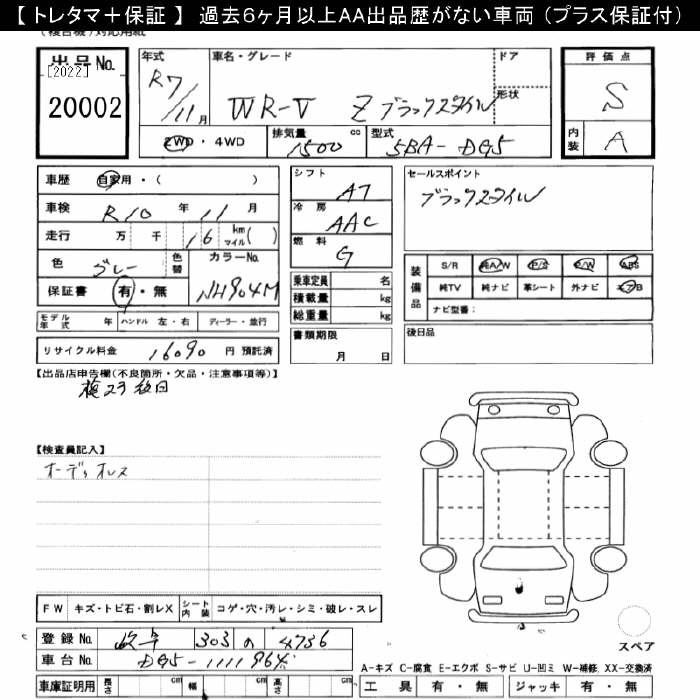 【 トレタマ＋保証 】 過去６ヶ月以上AA出品歴がない車両 （プラス保証付）
出品No.
[2022]
20002
年式
R7/11月
車名・グレード
WR-V Z ブラックスタイル
ドア
形状
2WD・4WD
排気量 1500 cc
型式 5BA-DG5
評価点
S
内装 A
車歴 自家用・( )
車検 R10 年 11 月
走行 万 千 16 km マイル( )
色 グレー 色替
カラーNo. NH904M
保証書 有・無
モデル年式 年 ハンドル 左・右 ディーラー・並行
リサイクル料金 16090 円 預託済
シフト AT
冷房 AAC
燃料 G
乗車定員 名
積載量 kg
総重量 kg
書類期限
月 日
セールスポイント
ブラックスタイル
装備品
S/R 純A/W P/S P/W ABS
純TV 純ナビ 革シート 外ナビ エアB
ナビ型番：
後日品
【出品店申告欄(不良箇所・欠品・注意事項等)】
【検査員記入】
オーディオレス
FW キズ・トビ石・割レX シート内装 コゲ・穴・汚レ・シミ・破レ・スレ
登録No. 303 4736
車台No. DG5-1111964
車庫証明用 長さ cm 幅 cm 高さ cm
スペア
A-キズ C-腐食 E-エクボ S-サビ U-凹ミ W-補修 XX-交換済
工具 有・無 ジャッキ 有・無